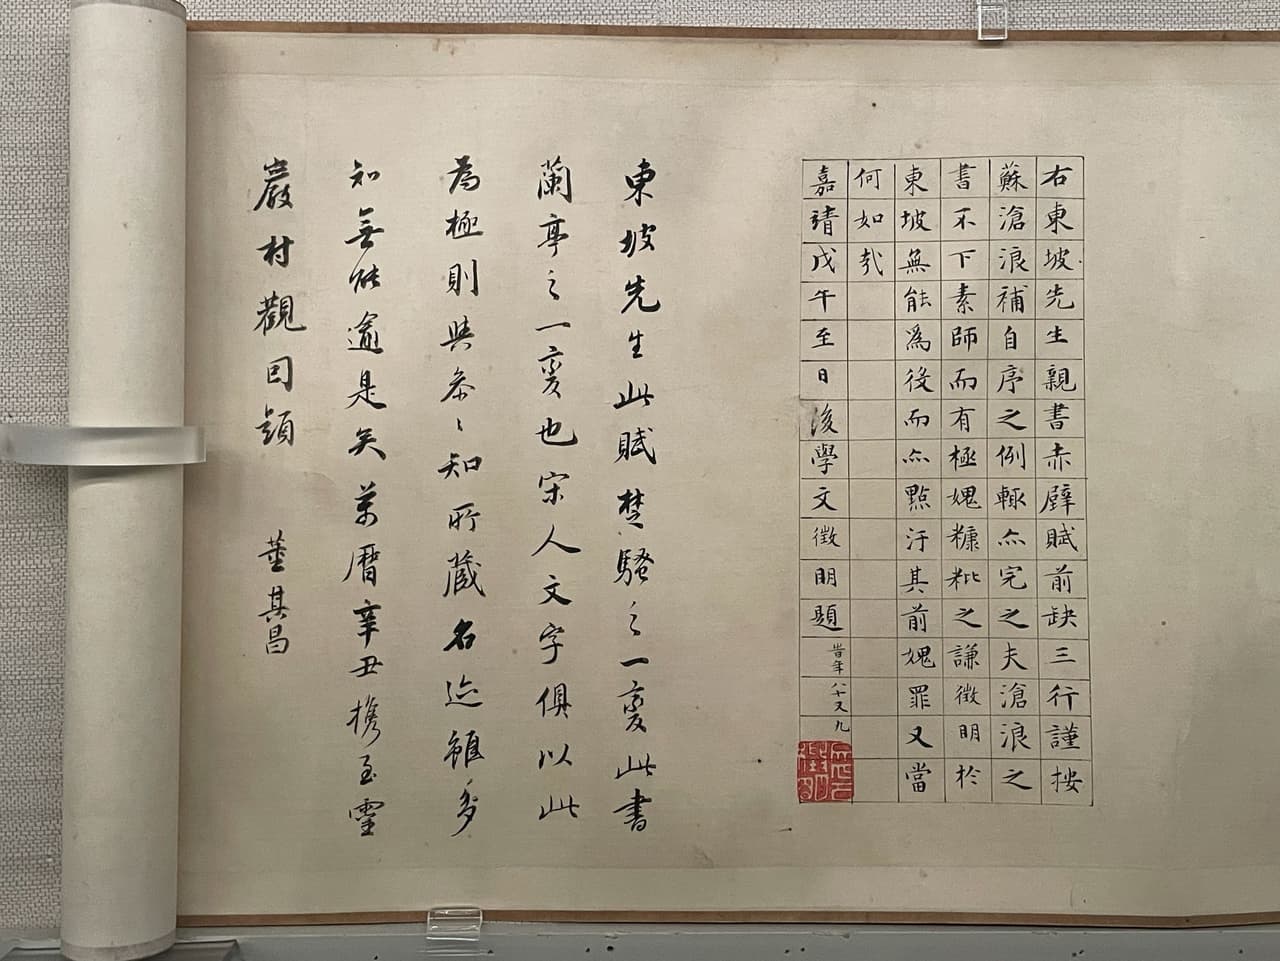 右東坡先生親書赤壁賦前缺三行謹按
蘇滄浪補自序之例輒亦完之夫滄浪之
書不下素師而有極媿糠粃之謙徵明於
東坡無能為後而亦點汙其前媿罪又當
何如哉
嘉靖戊午至日後學文徵明題 時年八十又九
東坡先生此賦楚騷之一變此書
蘭亭之一變也宋人文字俱以此
為極則與參參知所藏名迹雖多
知無能逾是矣萬曆辛丑攜至靈
巖村觀因題 董其昌